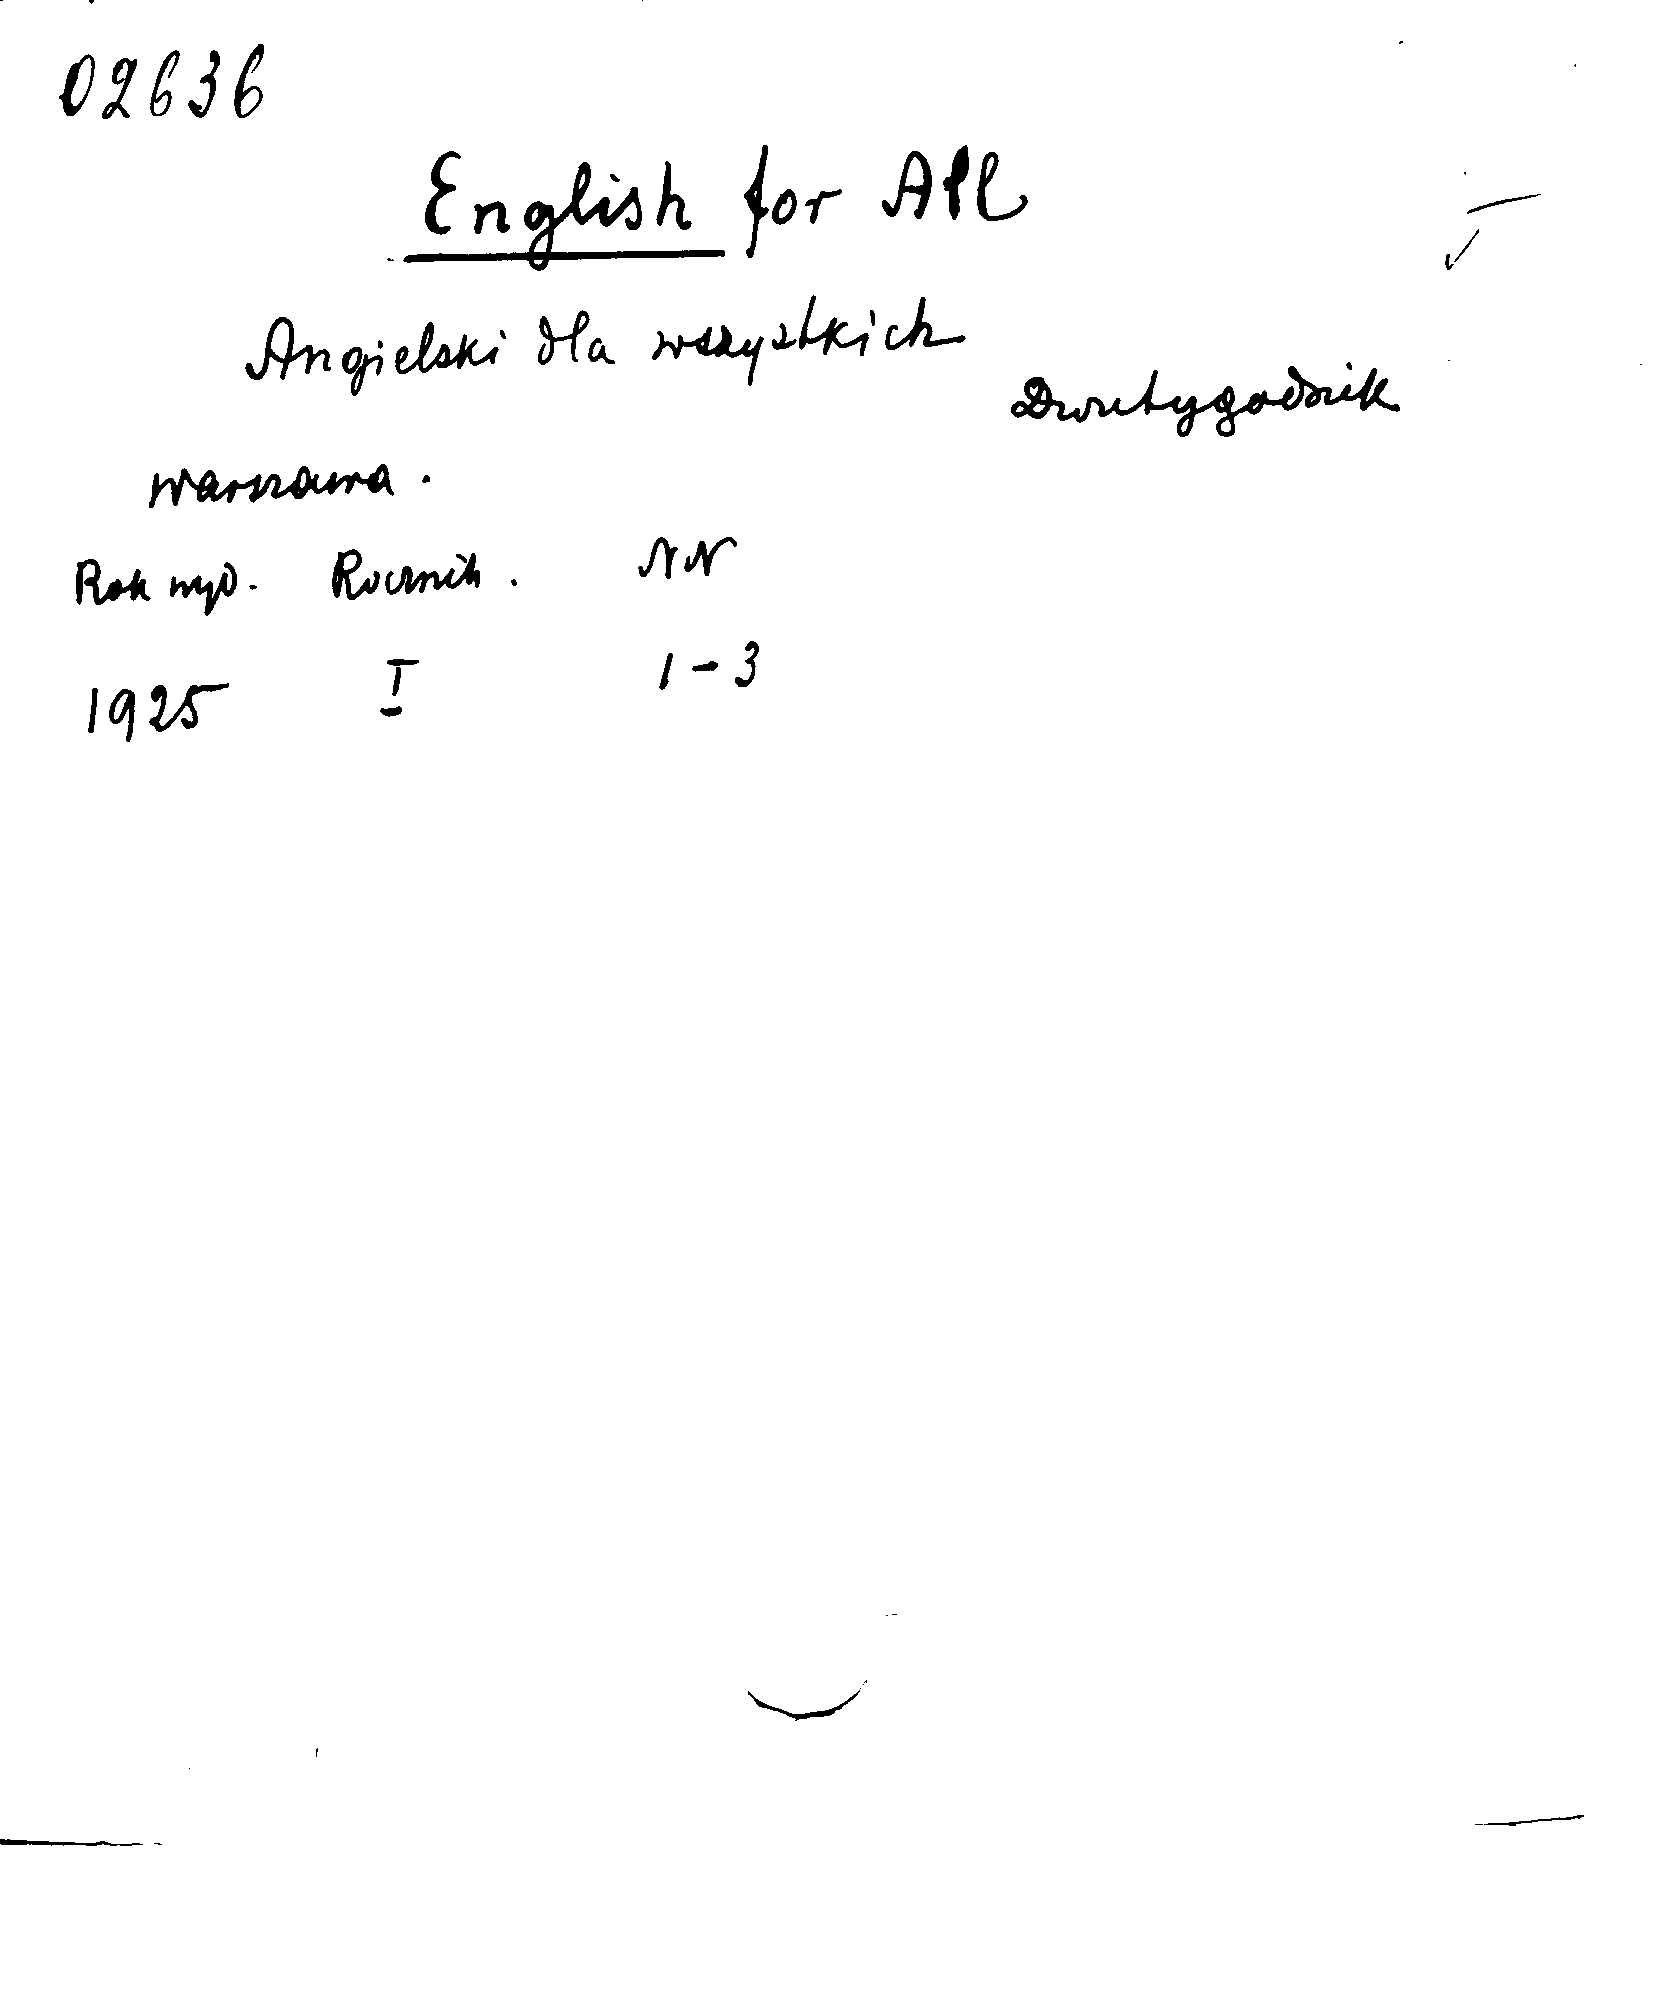 02636
English for All
Angielski dla wszystkich
Dwutygodnik
Warszawa.
Rok wyd. Rocznik. NN
1925 I 1-3